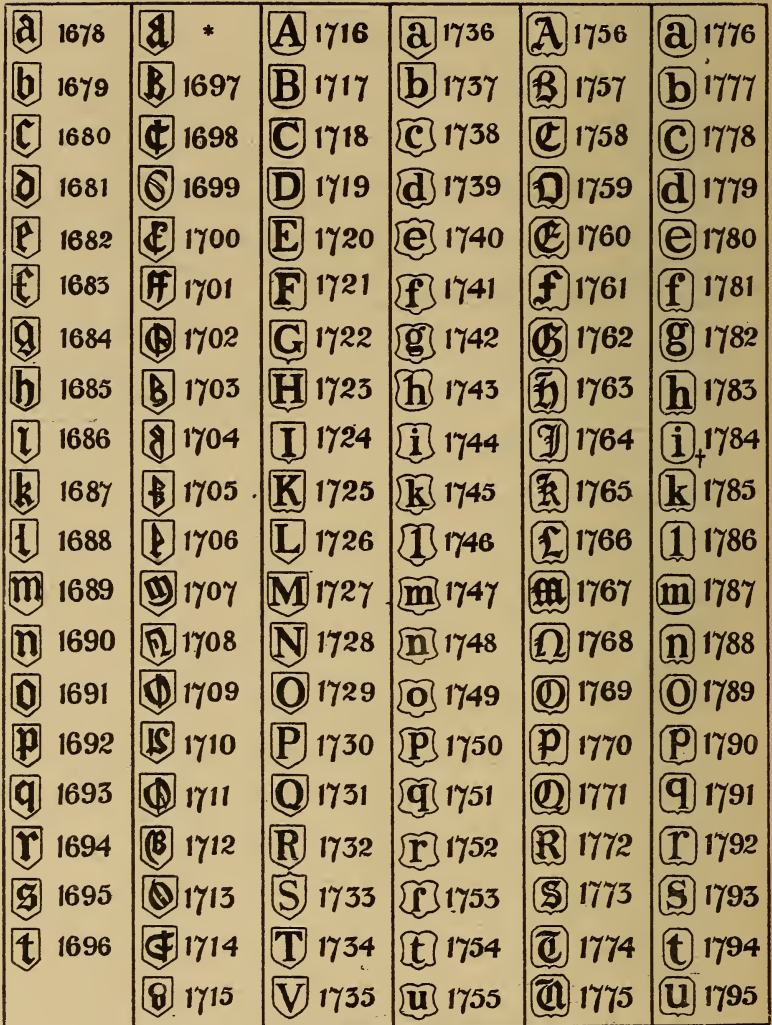 a 1678 a * A 1716 a 1736 A 1756 a 1776
b 1679 B 1697 B 1717 b 1737 B 1757 b 1777
c 1680 C 1698 C 1718 c 1738 C 1758 c 1778
d 1681 1699 D 1719 d 1739 D 1759 d 1779
e 1682 E 1700 E 1720 e 1740 E 1760 e 1780
f 1683 ff 1701 F 1721 f 1741 F 1761 f 1781
g 1684 1702 G 1722 g 1742 G 1762 g 1782
h 1685 1703 H 1723 h 1743 H 1763 h 1783
i 1686 1704 I 1724 i 1744 I 1764 i † 1784
k 1687 1705 K 1725 k 1745 K 1765 k 1785
l 1688 1706 L 1726 l 1746 L 1766 l 1786
m 1689 1707 M 1727 m 1747 M 1767 m 1787
n 1690 1708 N 1728 n 1748 N 1768 n 1788
o 1691 1709 O 1729 o 1749 O 1769 O 1789
p 1692 1710 P 1730 P 1750 P 1770 P 1790
q 1693 1711 Q 1731 q 1751 Q 1771 q 1791
r 1694 1712 R 1732 r 1752 R 1772 r 1792
s 1695 1713 S 1733 ſ 1753 S 1773 S 1793
t 1696 1714 T 1734 t 1754 T 1774 t 1794
1715 V 1735 u 1755 U 1775 u 1795